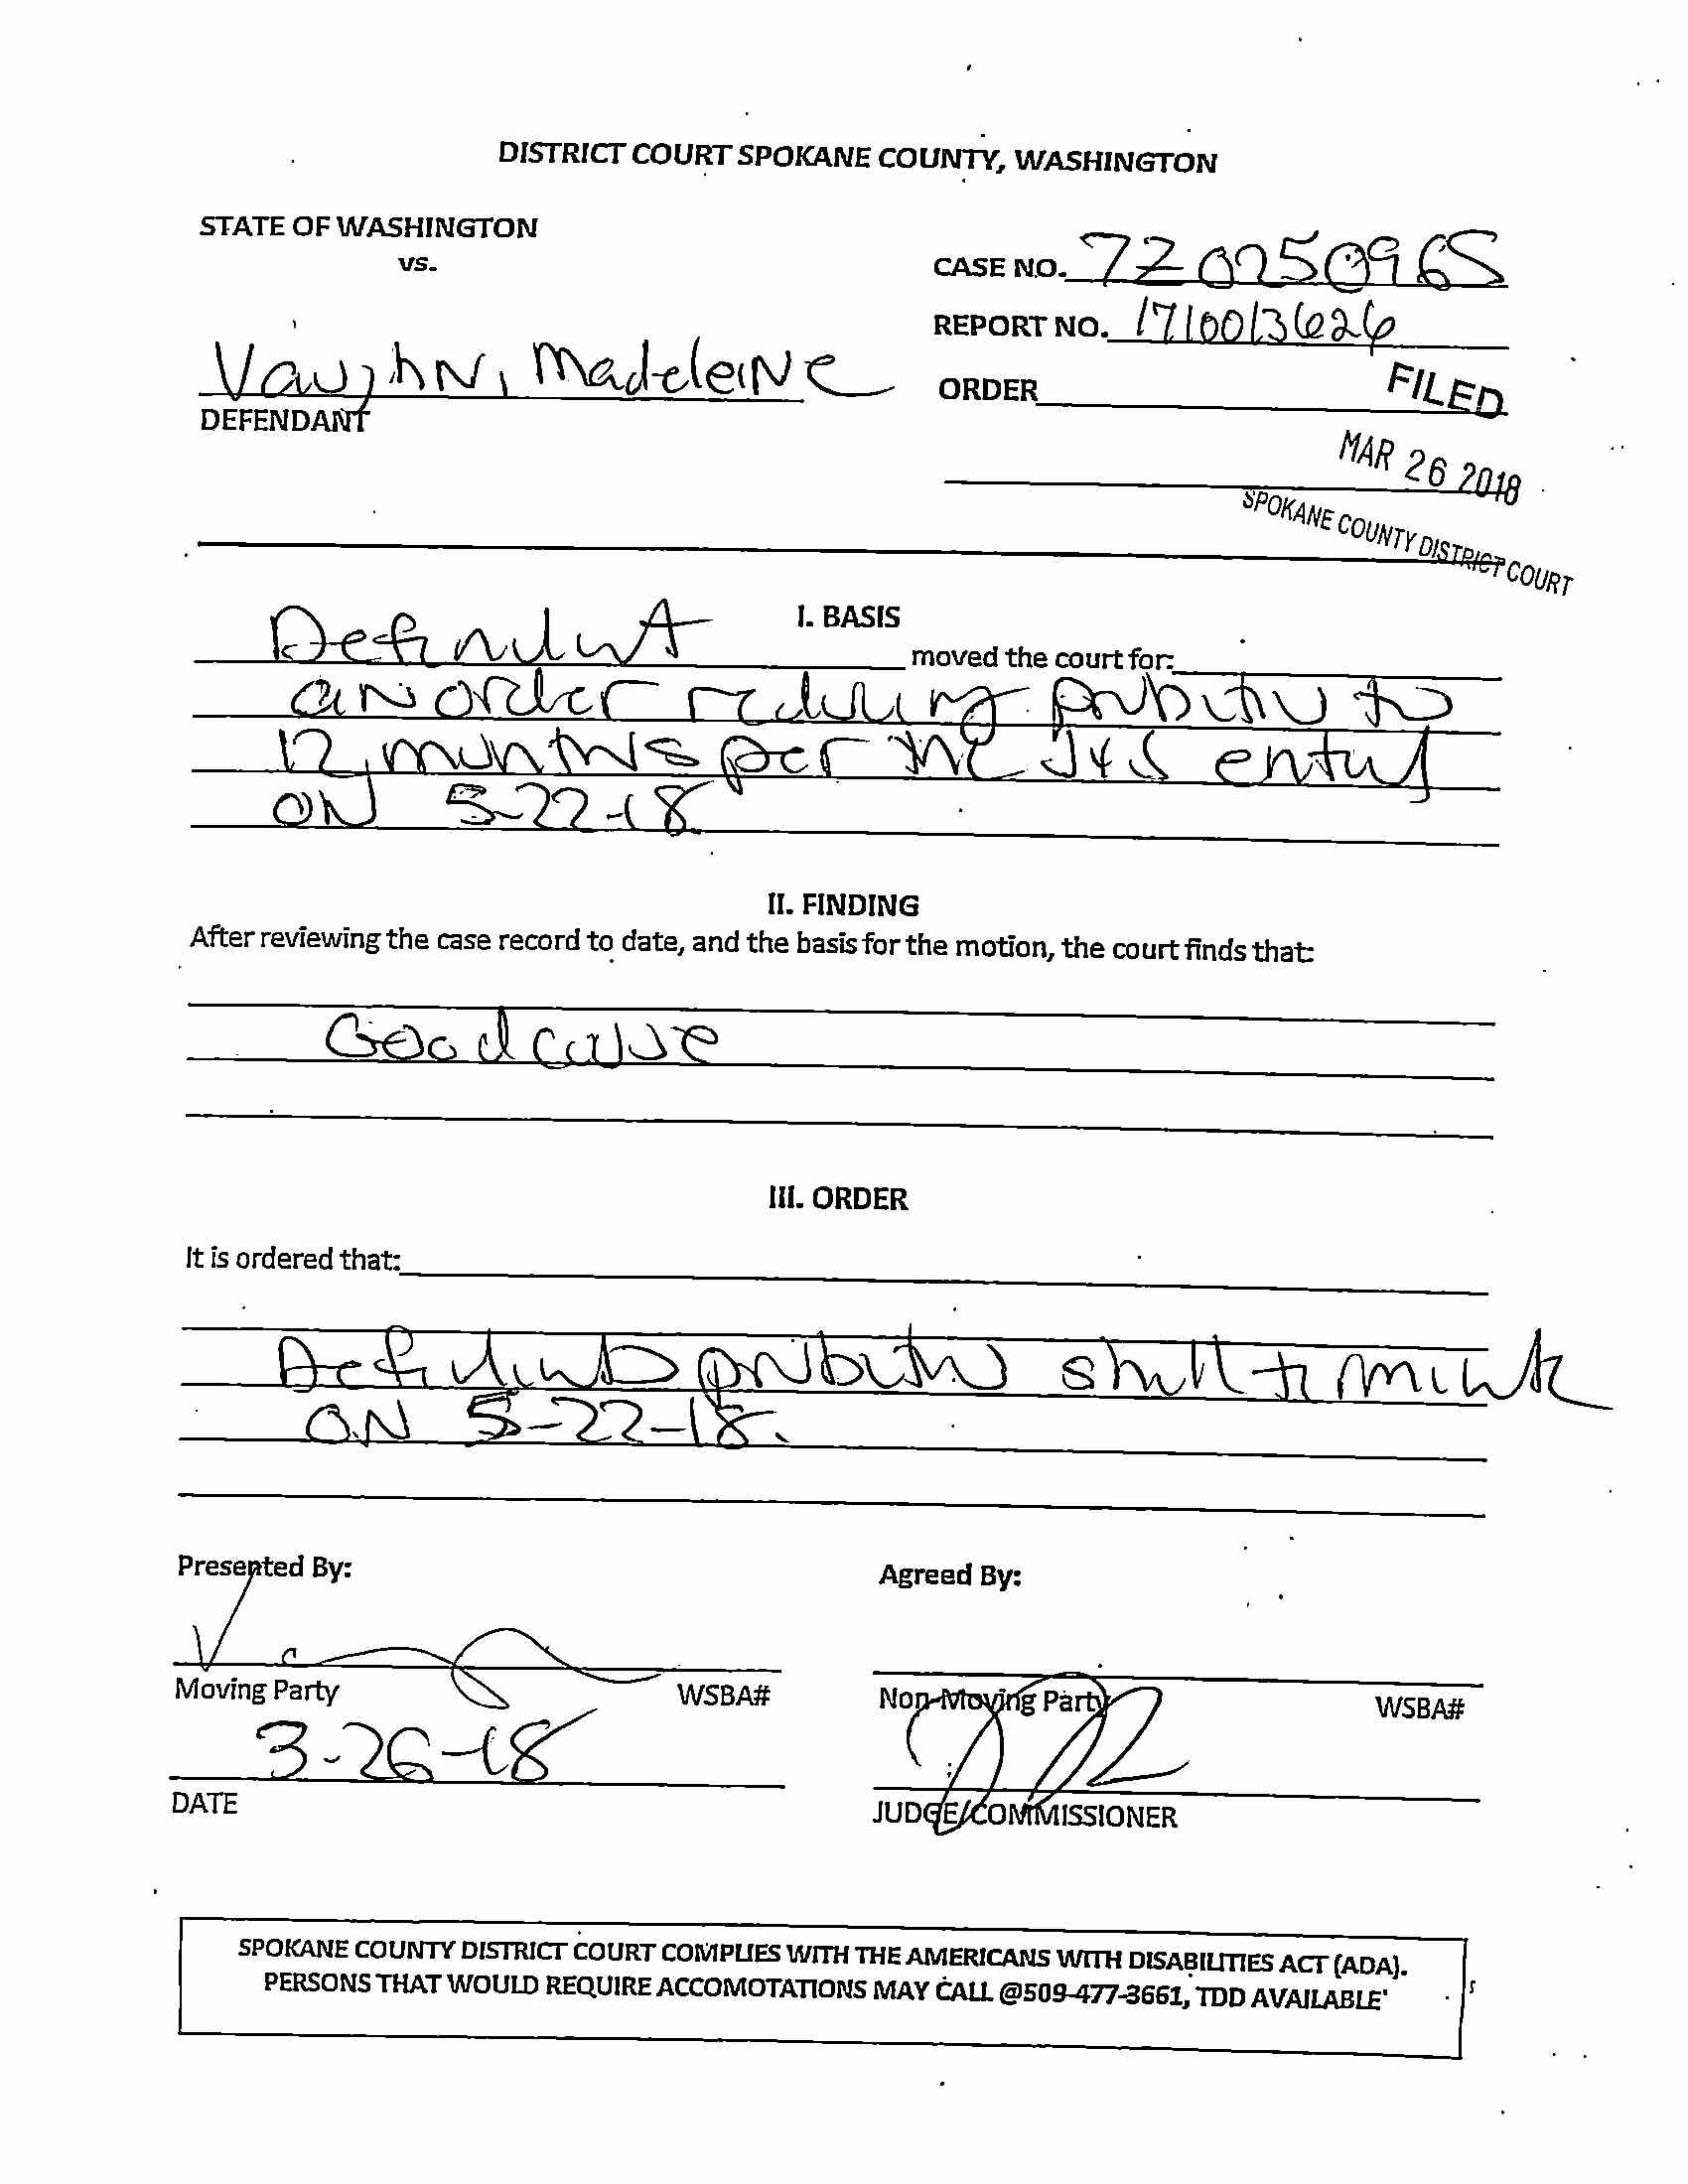 DISTRICT COURT SPOKANE COUNTY, WASHINGTON
STATE OF WASHINGTON
vs.
CASE NO. 7Z0250965
REPORT NO. 1710013626
Vaughn, Madeleine
DEFENDANT
ORDER
FILED
MAR 26 2018
SPOKANE COUNTY DISTRICT COURT
I. BASIS
Defendant moved the court for:
an order reducing probation to
12 months per the J&S entered
on 5-22-18
II. FINDING
After reviewing the case record to date, and the basis for the motion, the court finds that:
Good cause
III. ORDER
It is ordered that:
Defendants probation shall terminate
on 5-22-18.
Presented By:
Agreed By:
Moving Party WSBA#
Non-Moving Party WSBA#
3-26-18
DATE
JUDGE/COMMISSIONER
SPOKANE COUNTY DISTRICT COURT COMPLIES WITH THE AMERICANS WITH DISABILITIES ACT (ADA).
PERSONS THAT WOULD REQUIRE ACCOMOTATIONS MAY CALL @509-477-3661, TDD AVAILABLE'